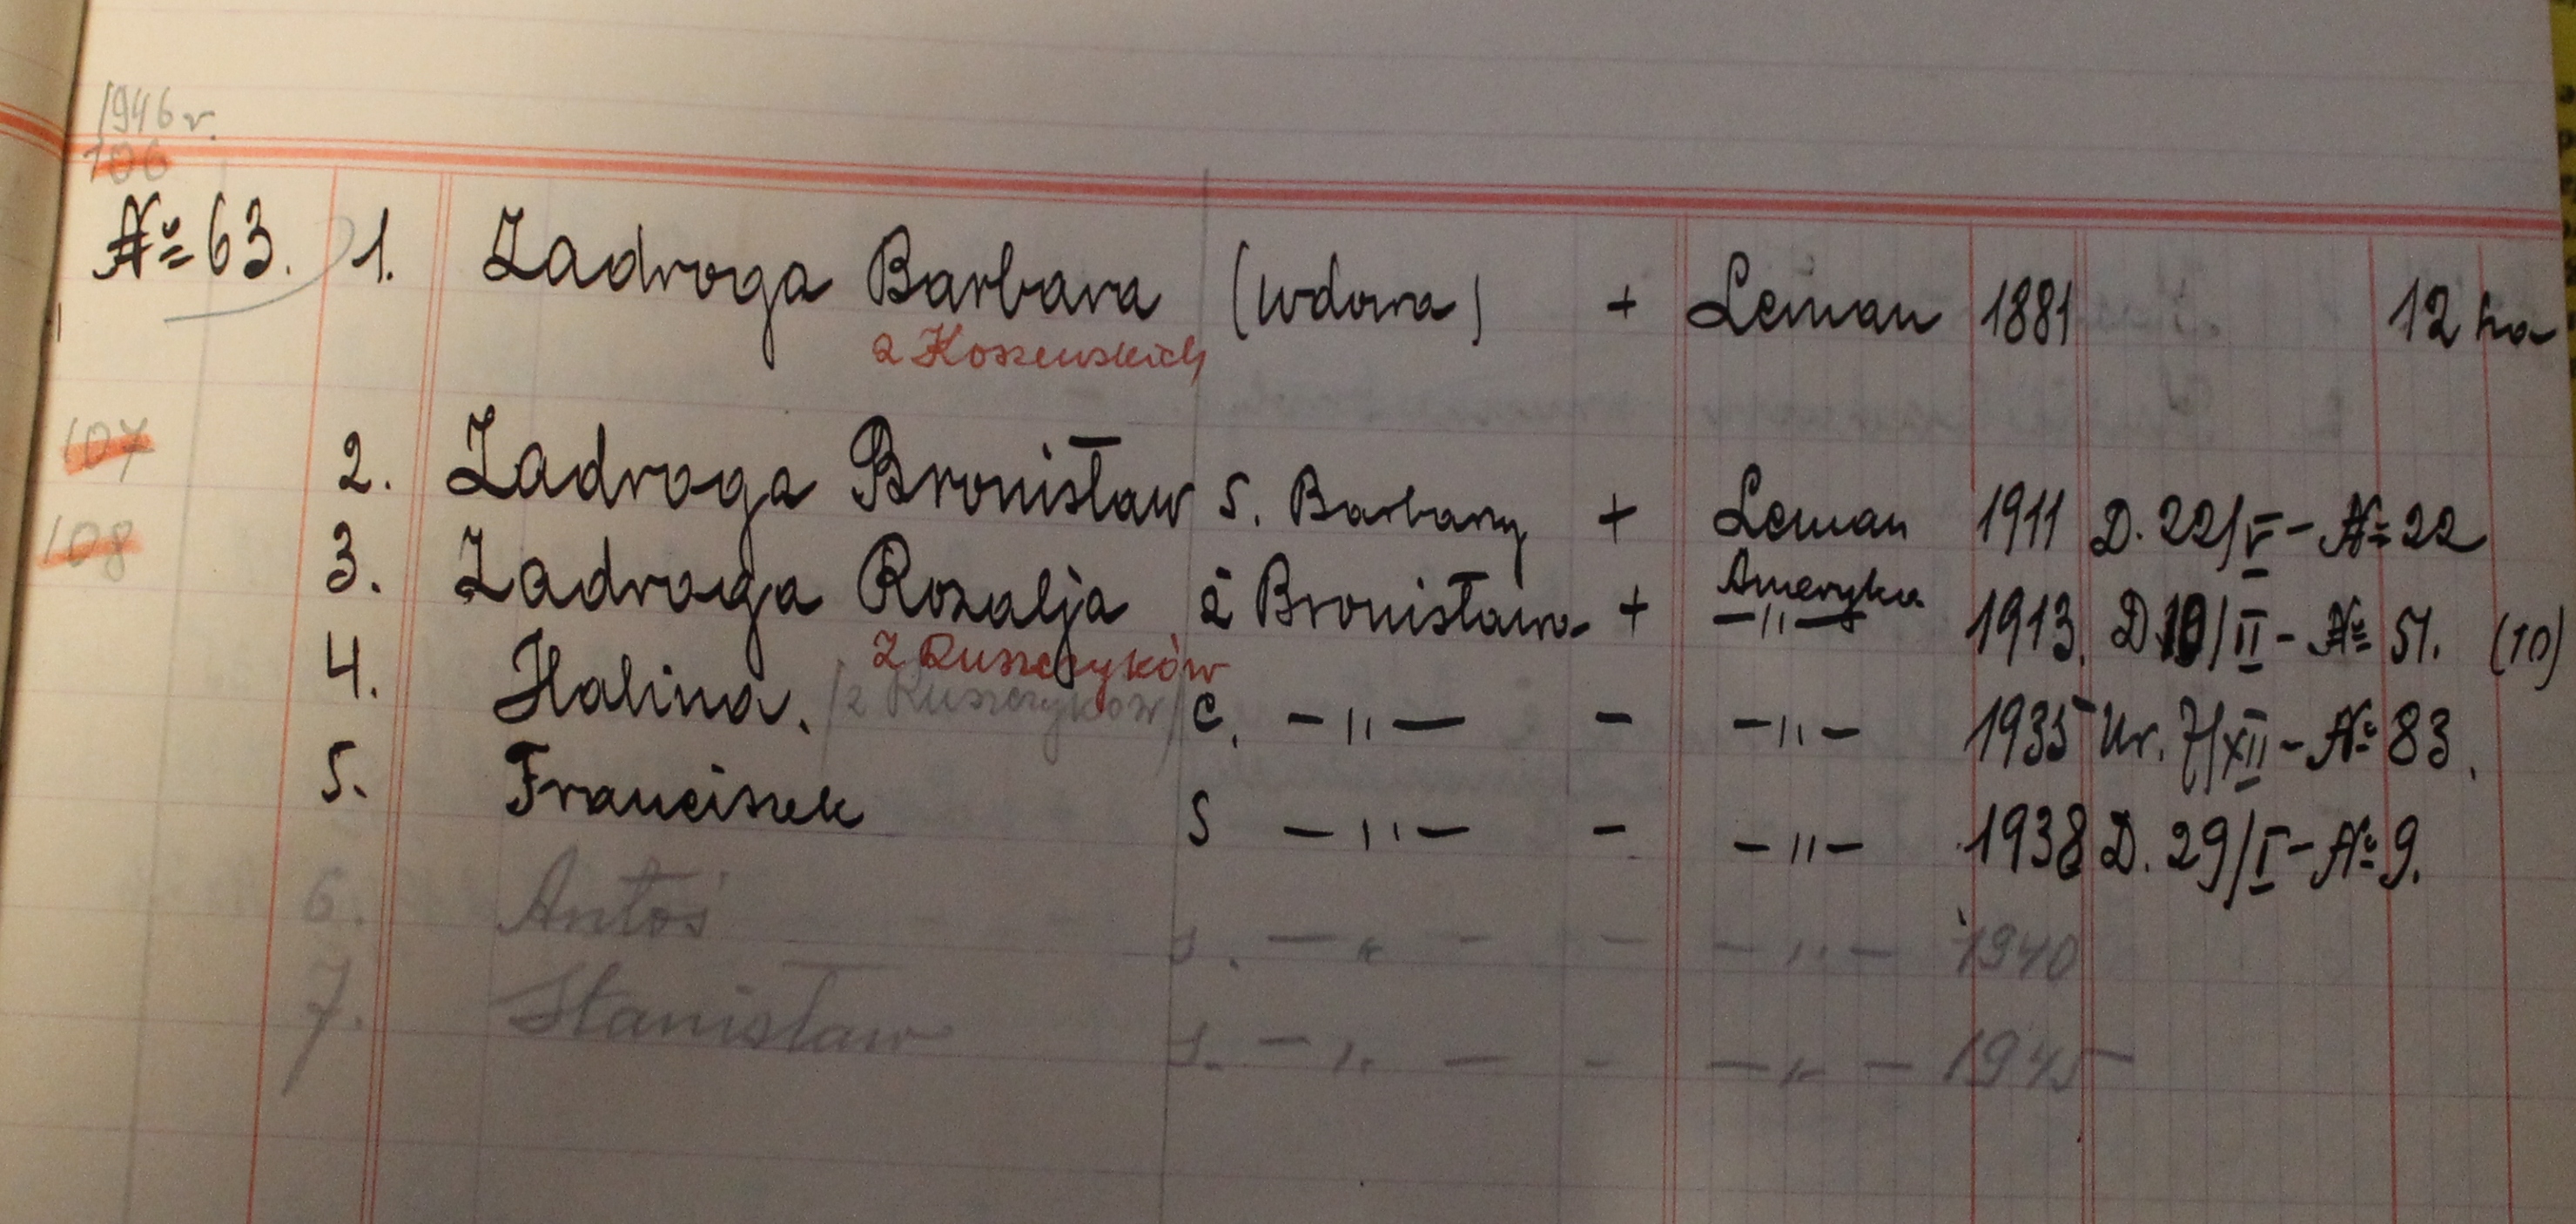 1946 r.
106
№ 63. 1. Zadroga Barbara (wdowa) + Leman 1881 12 ha
z Koszewskich
107 2. Zadroga Bronisław s. Barbary + Leman 1911 D. 22/V - № 22
Ameryka
108 3. Zadroga Rozalja ż Bronisława + -"- 1913. D. 10/II - № 51. (10)
z Ruszczyków
4. Halina. /z Ruszczyków/ c. -"- - -"- 1935 Ur. 7/XII - № 83.
5. Franciszek s -"- - -"- 1938 D. 29/I - № 9.
6. Antoś s. -"- - -"- 1940
7. Stanisław s. -"- - -"- 1945